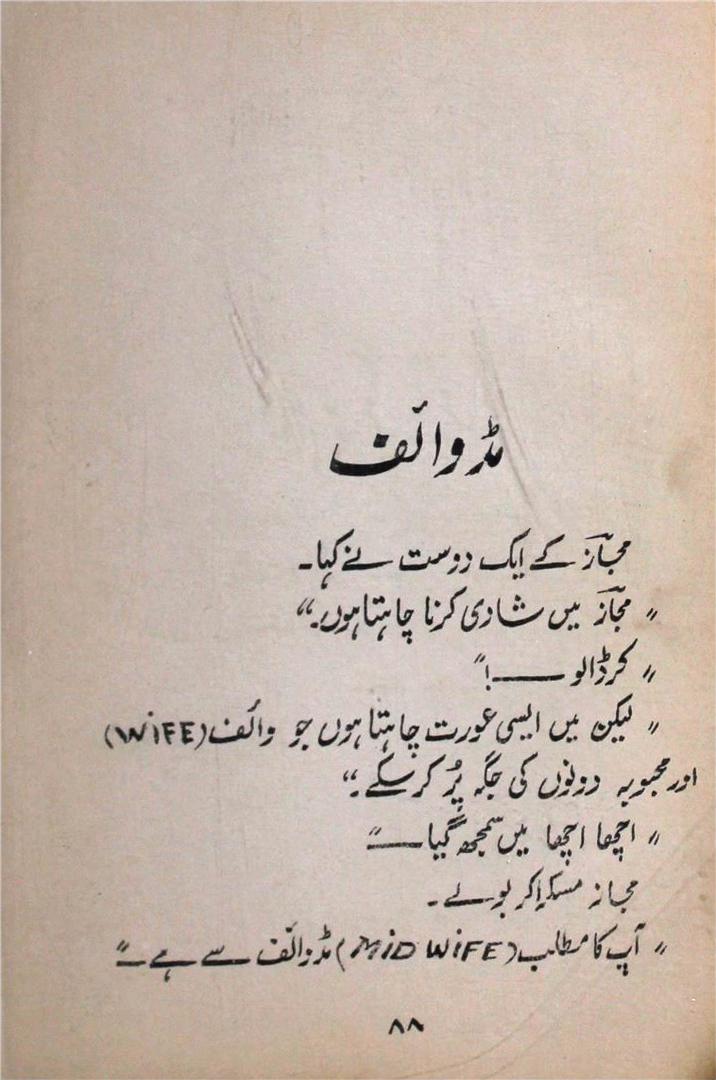 مڈوائف
مجازؔ کے ایک دوست نے کہا۔
”مجازؔ میں شادی کرنا چاہتا ہوں۔“
”کرڈالو ــــــ!“
”لیکن میں ایسی عورت چاہتا ہوں جو وائف (WiFE)
اور محبوبہ دونوں کی جگہ پُر کرسکے۔“
”اچھا اچھا میں سمجھ گیا ــــ“
مجاز مسکرا کر بولے۔
”آپ کا مطلب (MiD WiFE) مڈوائف سے ہے ــ“
۸۸